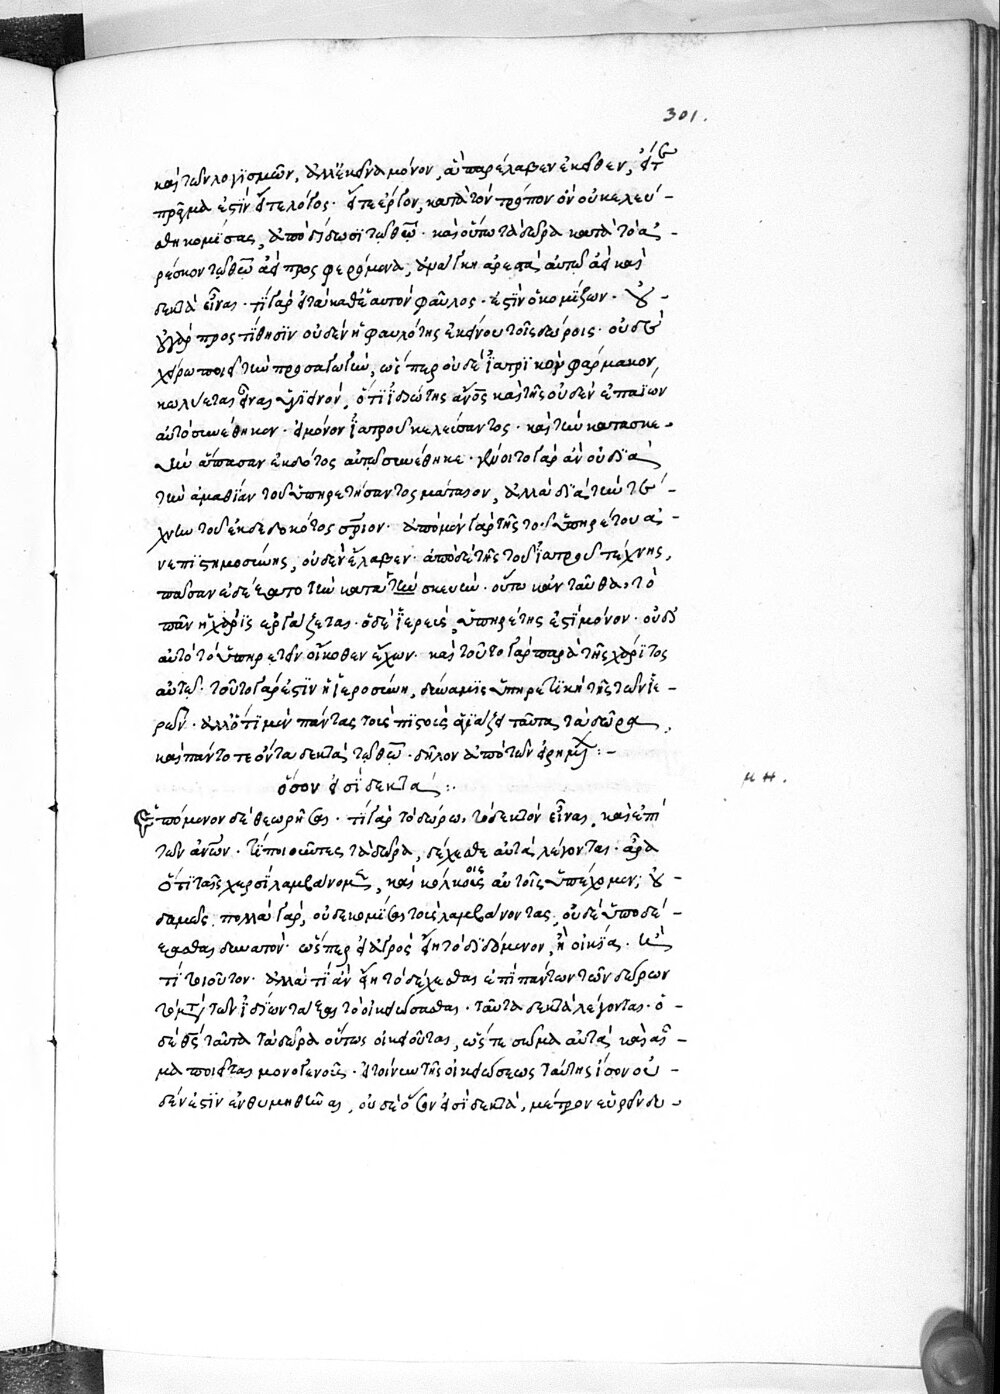 301.
καὶ τῶν λογισμῶν, ἀλλ' ἐκεῖνα μόνον, ἃ παρέλαβεν ἐκεῖθεν, εἴτε
πρᾶγμά ἐστιν εἴτε λόγος· εἴτε ἔργον, κατὰ τὸν τρόπον ὃν οὐ κελεύ-
σθη κομίσας, ἀποδίδωσι τῷ θεῷ· καὶ οὕτω τὰ δῶρα κατὰ τὸ ἀ-
ρέσκον τῷ θεῷ ἀεὶ προσφερόμενα, ἀνάγκη ἀρεστὰ αὐτῷ ἀεὶ καὶ
δεκτὰ εἶναι· τί γὰρ εἰ τὰ καθ' ἑαυτὸν φαῦλος ἐστὶν ὁ κομίζων· οὐ-
γὰρ προστίθησιν οὐδὲν ἡ φαυλότης ἐκείνου τοῖς δώροις· οὐδὲ
χείρω ποιεῖ τὴν προσαγωγὴν, ὥσπερ οὐδὲ ἰατρικὸν φάρμακον,
κωλύεται εἶναι ὑγιεινὸν, ὅτι ἰδιώτης ἄνος καὶ τῆς οὐδὲν ἐπαΐων
αὐτὸ συνέθηκεν· εἰ μόνον ἰατροῦ κελεύσαντος· καὶ τὴν κατασκευ-
ὴν ἅπασαν ἐκδόντος αὐτῷ συνέθηκε· γένοιτο γὰρ ἂν οὐ διὰ
τὴν ἀμαθίαν τοῦ ὑπηρετήσαντος μάταιον, ἀλλὰ διὰ τὴν τέ-
χνην τοῦ ἐκδεδωκότος σριον· ἀπὸ μὲν γὰρ τῆς τοῦ ὑπηρέτου ἀ-
νεπιστημοσύνης, οὐδὲν ἔλαβεν· ἀπὸ δὲ τῆς τοῦ ἰατροῦ τέχνης,
πᾶσαν ἐδέξατο τὴν κατασκευήν· οὕτω κἀνταῦθα, τὸ
πᾶν ἡ χάρις ἐργάζεται· ὁ δὲ ἱερεὺς, ὑπηρέτης ἐστὶ μόνον· οὐδ'
αὐτὸ τὸ ὑπηρετεῖν οἴκοθεν ἔχων· καὶ τοῦτο γὰρ παρὰ τῆς χάριτος
αὐτῷ· τοῦτο γάρ ἐστιν ἡ ἱεροσύνη, δύναμις ὑπηρετικὴ τῆς τῶν ἱε-
ρῶν· ἀλλ' ὅτι μὲν πάντας τοὺς πιστοὺς ἁγιάζει ταῦτα τὰ δῶρα,
καὶ πάντοτε ὄντα δεκτὰ τῷ θεῷ· δῆλον ἀπὸ τῶν εἰρημέ :-
ὅσον εἰσὶ δεκτά :·
μη.
Ἑπόμενον δὲ θεωρῆσαι· τί γὰρ τὸ δώρῳ, τὸ δεκτὸν εἶναι, καὶ ἐπὶ
τῶν ἀνων· τί ποιοῦντες τὰ δῶρα, δέχεσθαι αὐτὰ λέγονται· ἆρα
ὅτι ταῖς χερσὶ λαμβάνομεν, καὶ κόλποις αὐτοῖς ὑπέχομεν; οὐ-
δαμῶς. πολλὰ γὰρ, οὐδὲ κομίσαι τοὺς λαμβάνοντας, οὐδὲ ὑποδέ-
ξασθαι δυνατόν· ὥσπερ εἰ ἀγρὸς εἴη τὸ διδόμενον, ἢ οἰκία· ἢ
τι τοιοῦτον· ἀλλὰ τί ἂν εἴη τὸ δέχεσθαι ἐπὶ πάντων τῶν δώρων
τὸ μετὰ τῶν ἰδίων τάξαι τὸ οἰκειώσασθαι· ταῦτα δεκτὰ λέγονται· ὁ
δὲ θς ταῦτα τὰ δῶρα οὕτως οἰκειοῦται, ὥστε σῶμα αὐτὰ καὶ αἷ-
μα ποιεῖται μονογενοῦς· εἰ τοίνυν τῆς οἰκειώσεως ταύτης ἴσον οὐ-
δέν ἐστιν ἐνθυμηθῆναι, οὐδὲ ὅσον εἰσὶ δεκτὰ, μέτρον εὑρεῖν δυ-